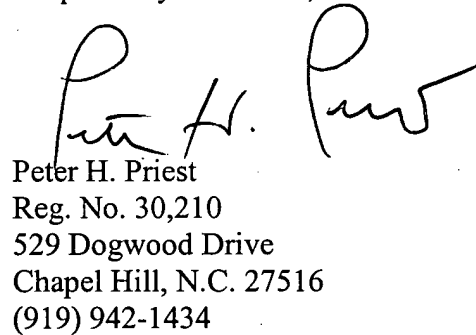 Peter H. Priest
Peter H. Priest
Reg. No. 30,210
529 Dogwood Drive
Chapel Hill, N.C. 27516
(919) 942-1434